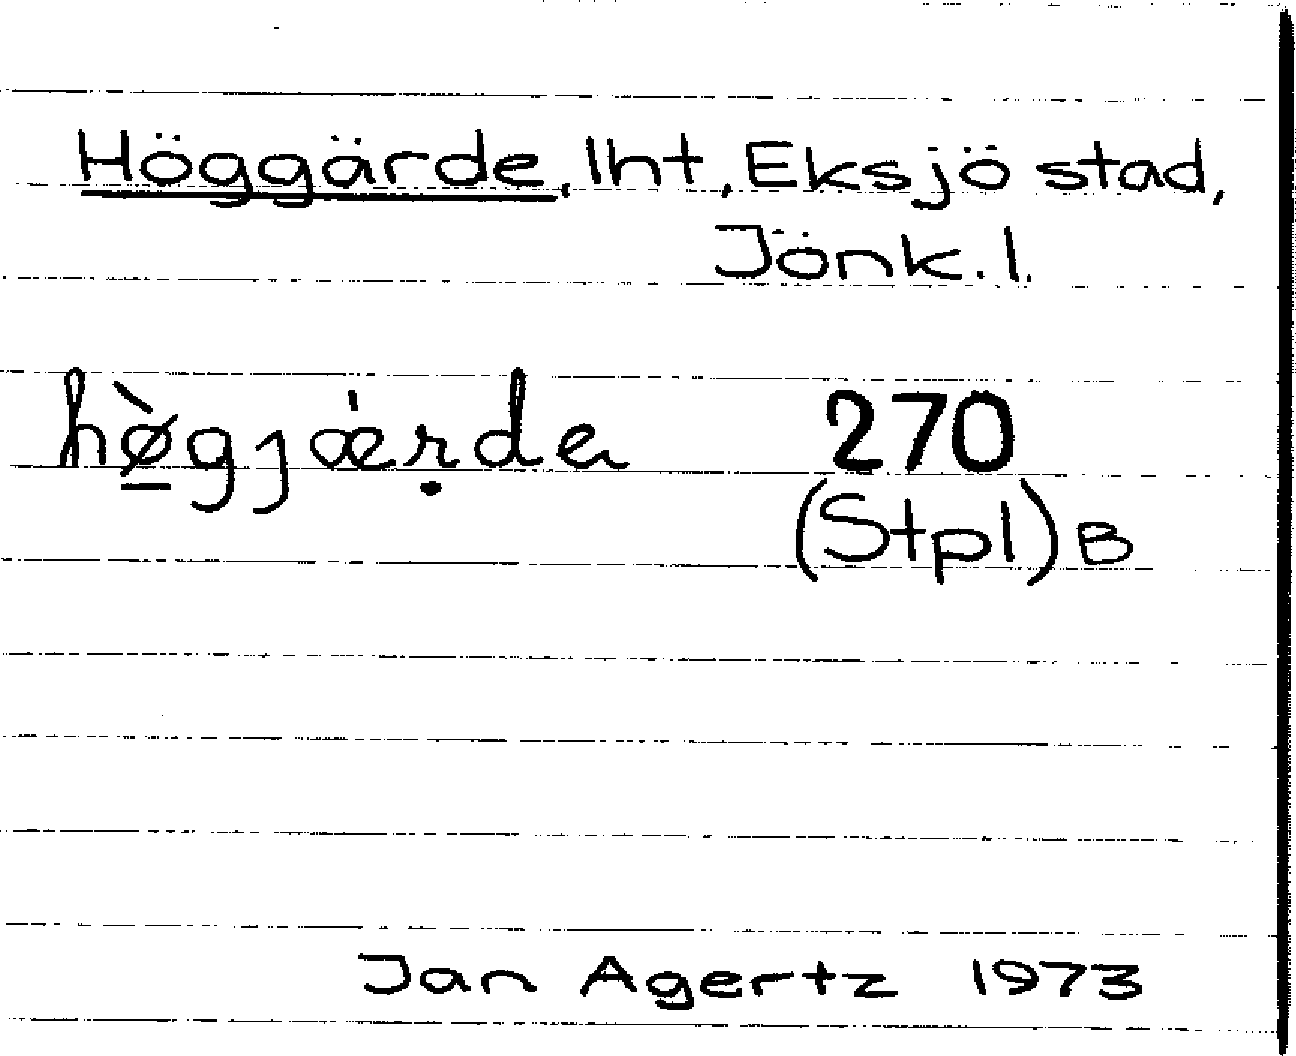 Höggärde, lht, Eksjö stad,
Jönk. l.
hø̲̀gjǽṛde 270
(Stpl) B
Jan Agertz 1973